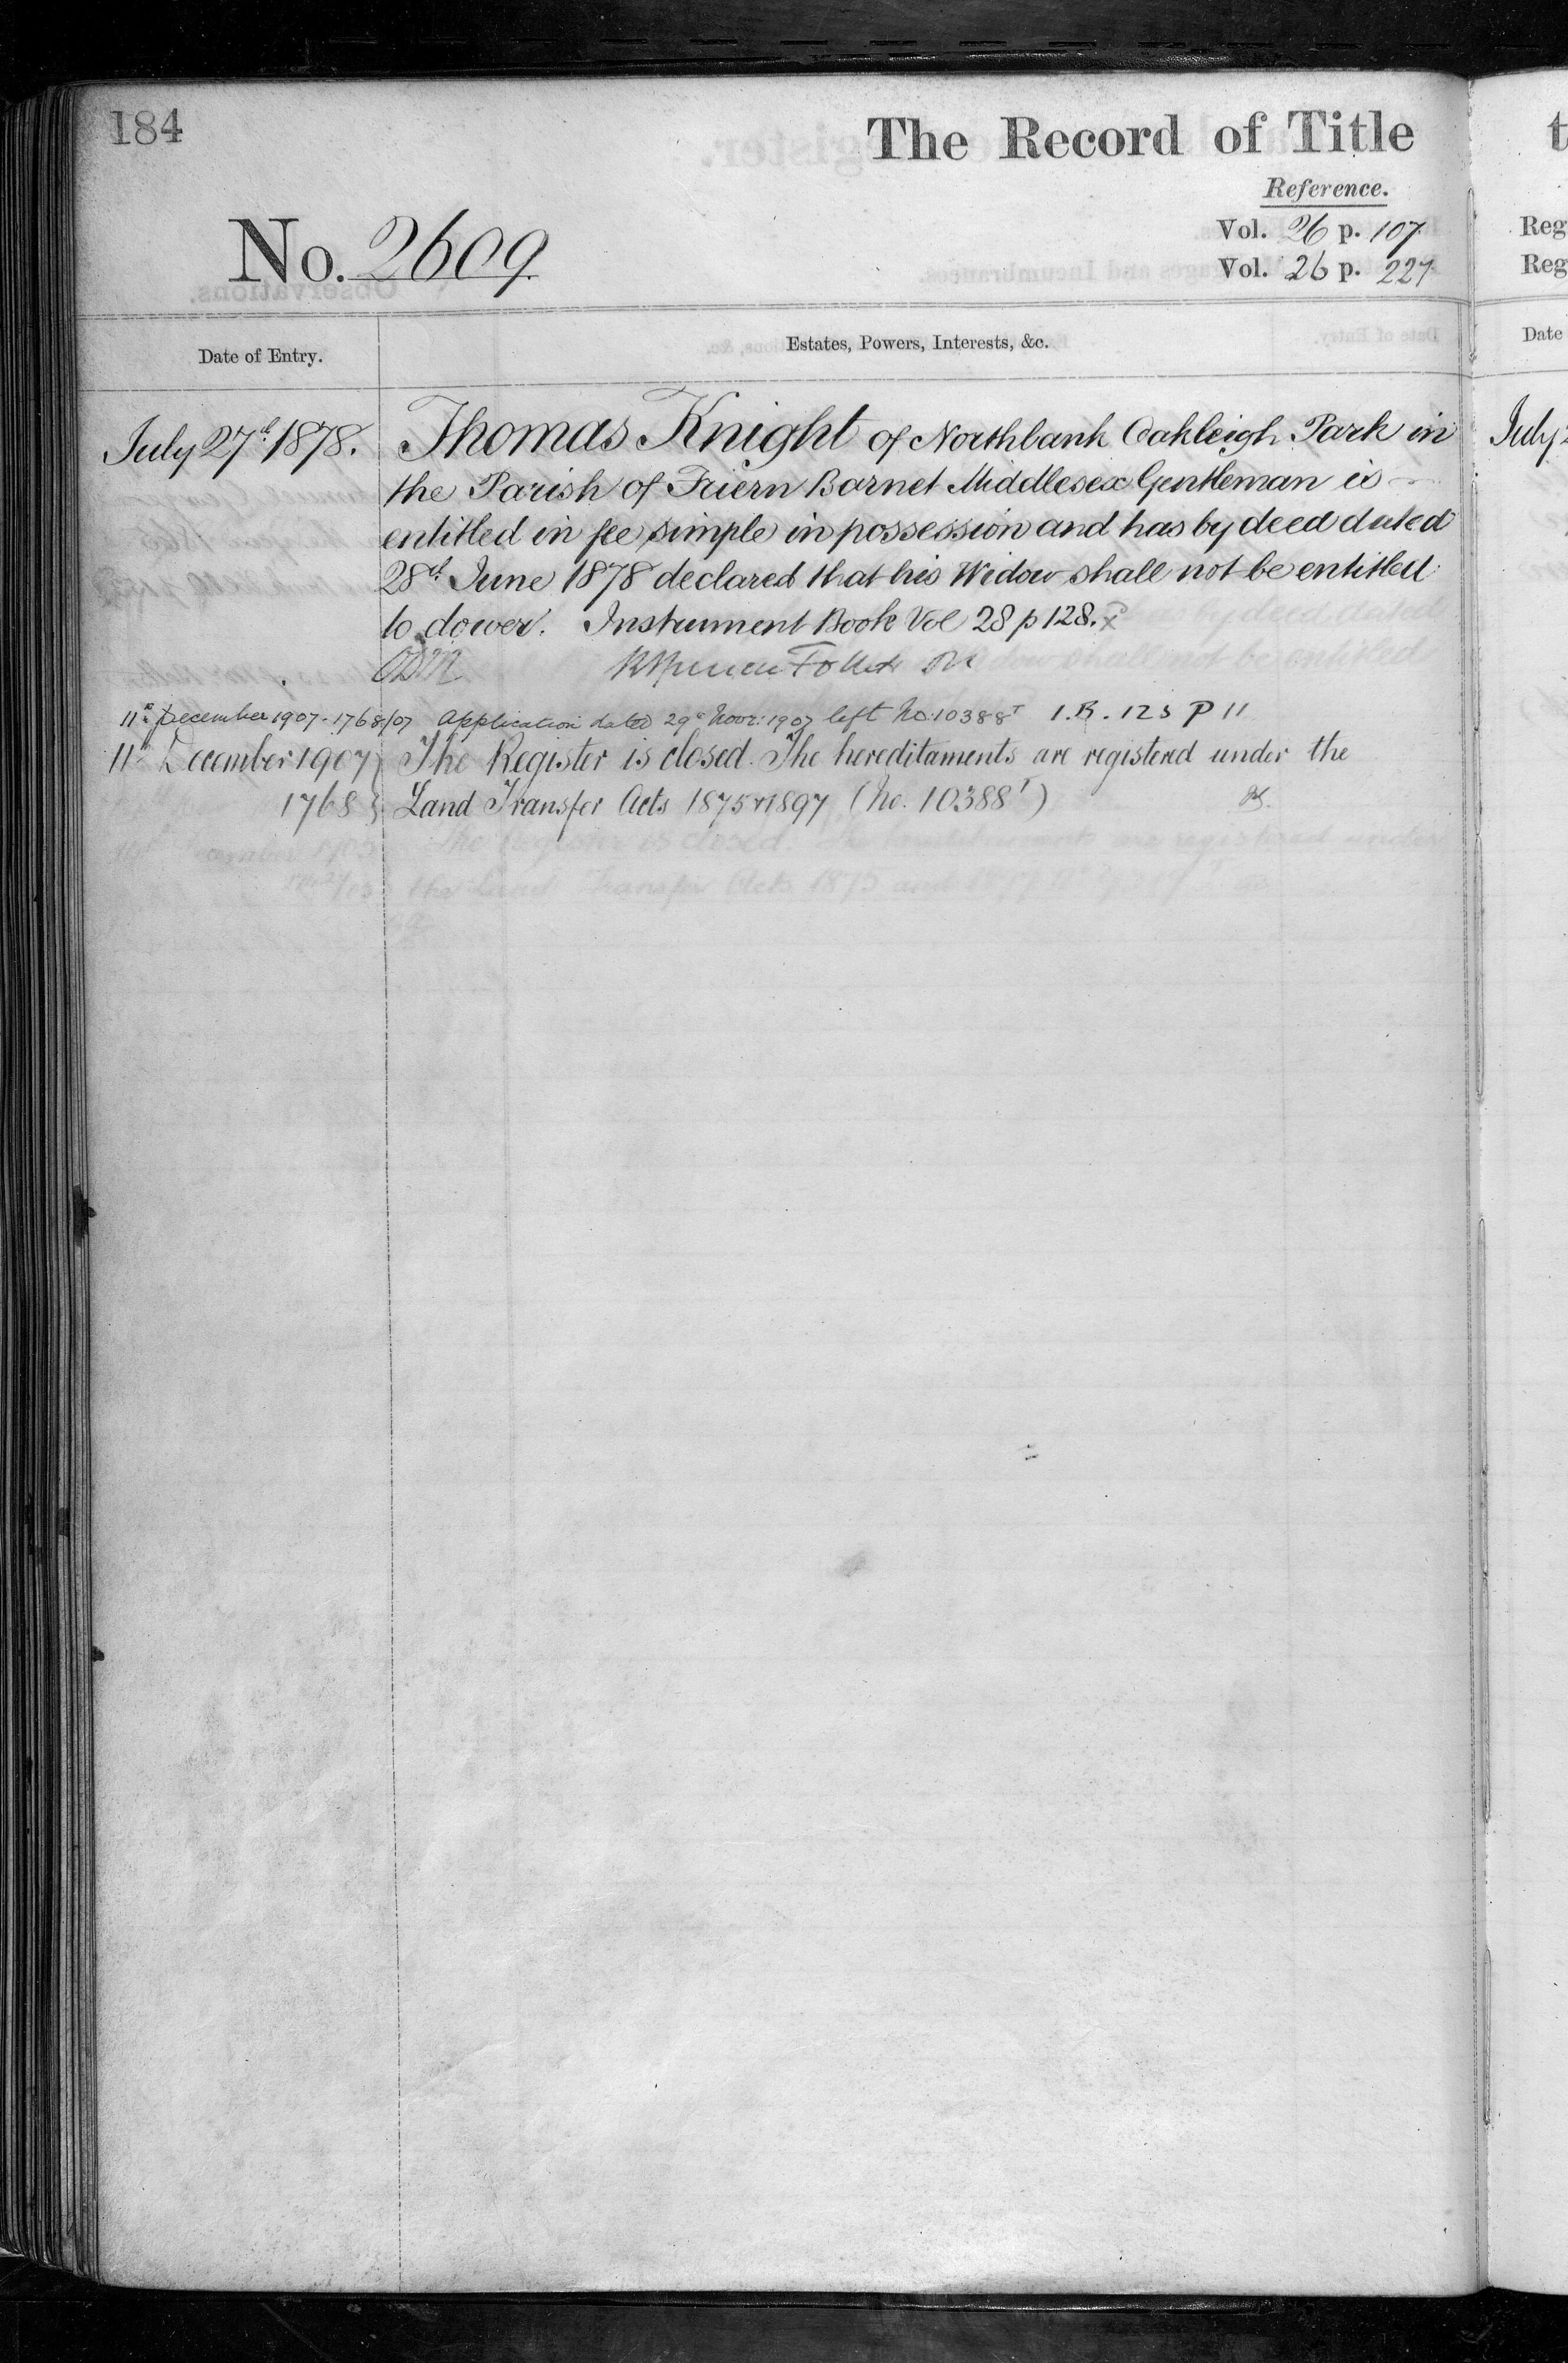 184
The Record of Title
Reference.
No. 2609
Vol. 26 p. 107
Vol. 26 p. 227
Date of Entry.
Estates, Powers, Interests, &c.
July 27th 1878.
Thomas Knight of Northbank Oakleigh Park in
the Parish of Friern Barnet Middlesex Gentleman is
entitled in fee simple in possession and has by deed dated
28th June 1878 declared that his Widow shall not be entitled
to dower. Instrument Book Vol 28 p 128.
11th December 1907 - 1768/07 Application dated 29th Novr: 1907 left No. 10388T I.B. 123 P 11
11th December 1907 } The Register is closed. The hereditaments are registered under the
1768 } Land Transfer Acts 1875 & 1897 (No. 10388T)
t
Reg
Reg
Date
July 2